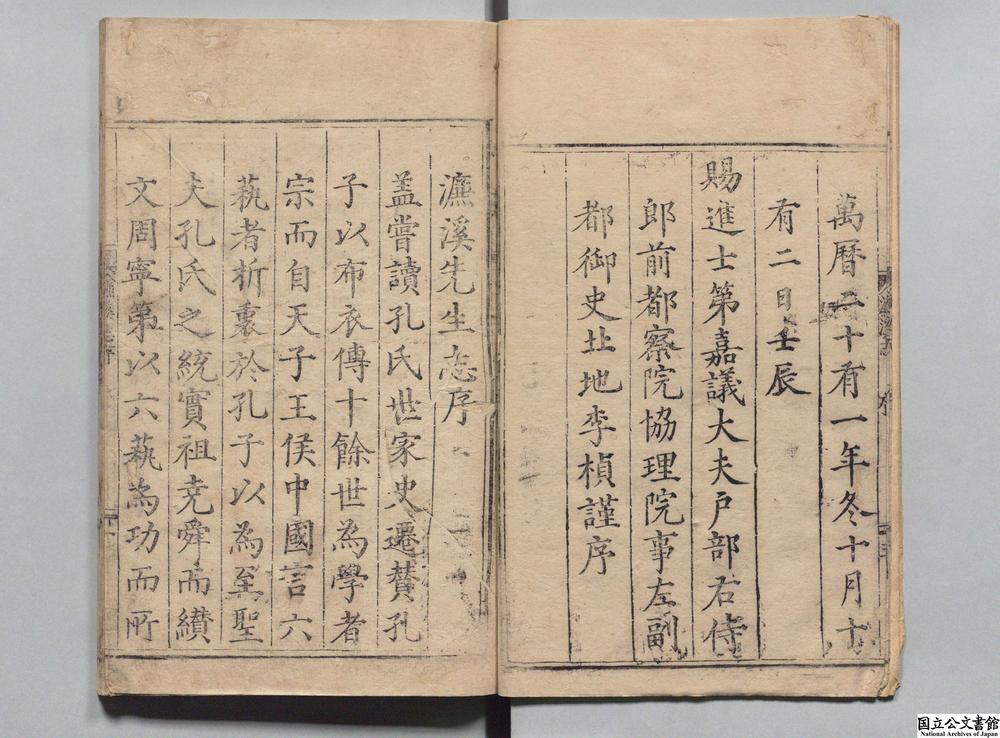 萬曆二十有一年冬十月十
有二日壬辰
賜進士第嘉議大夫户部右侍
郎前都察院協理院事左副
都御史北地李楨謹序
濂溪先生志序
盖嘗讀孔氏世家史遷賛孔
子以布衣傳十餘世為學者
宗而自天子王侯中國言六
蓺者折衷於孔子以為至聖
夫孔氏之統實祖尭舜而纉
文周寧第以六蓺為功而所
国立公文書館
National Archives of Japan